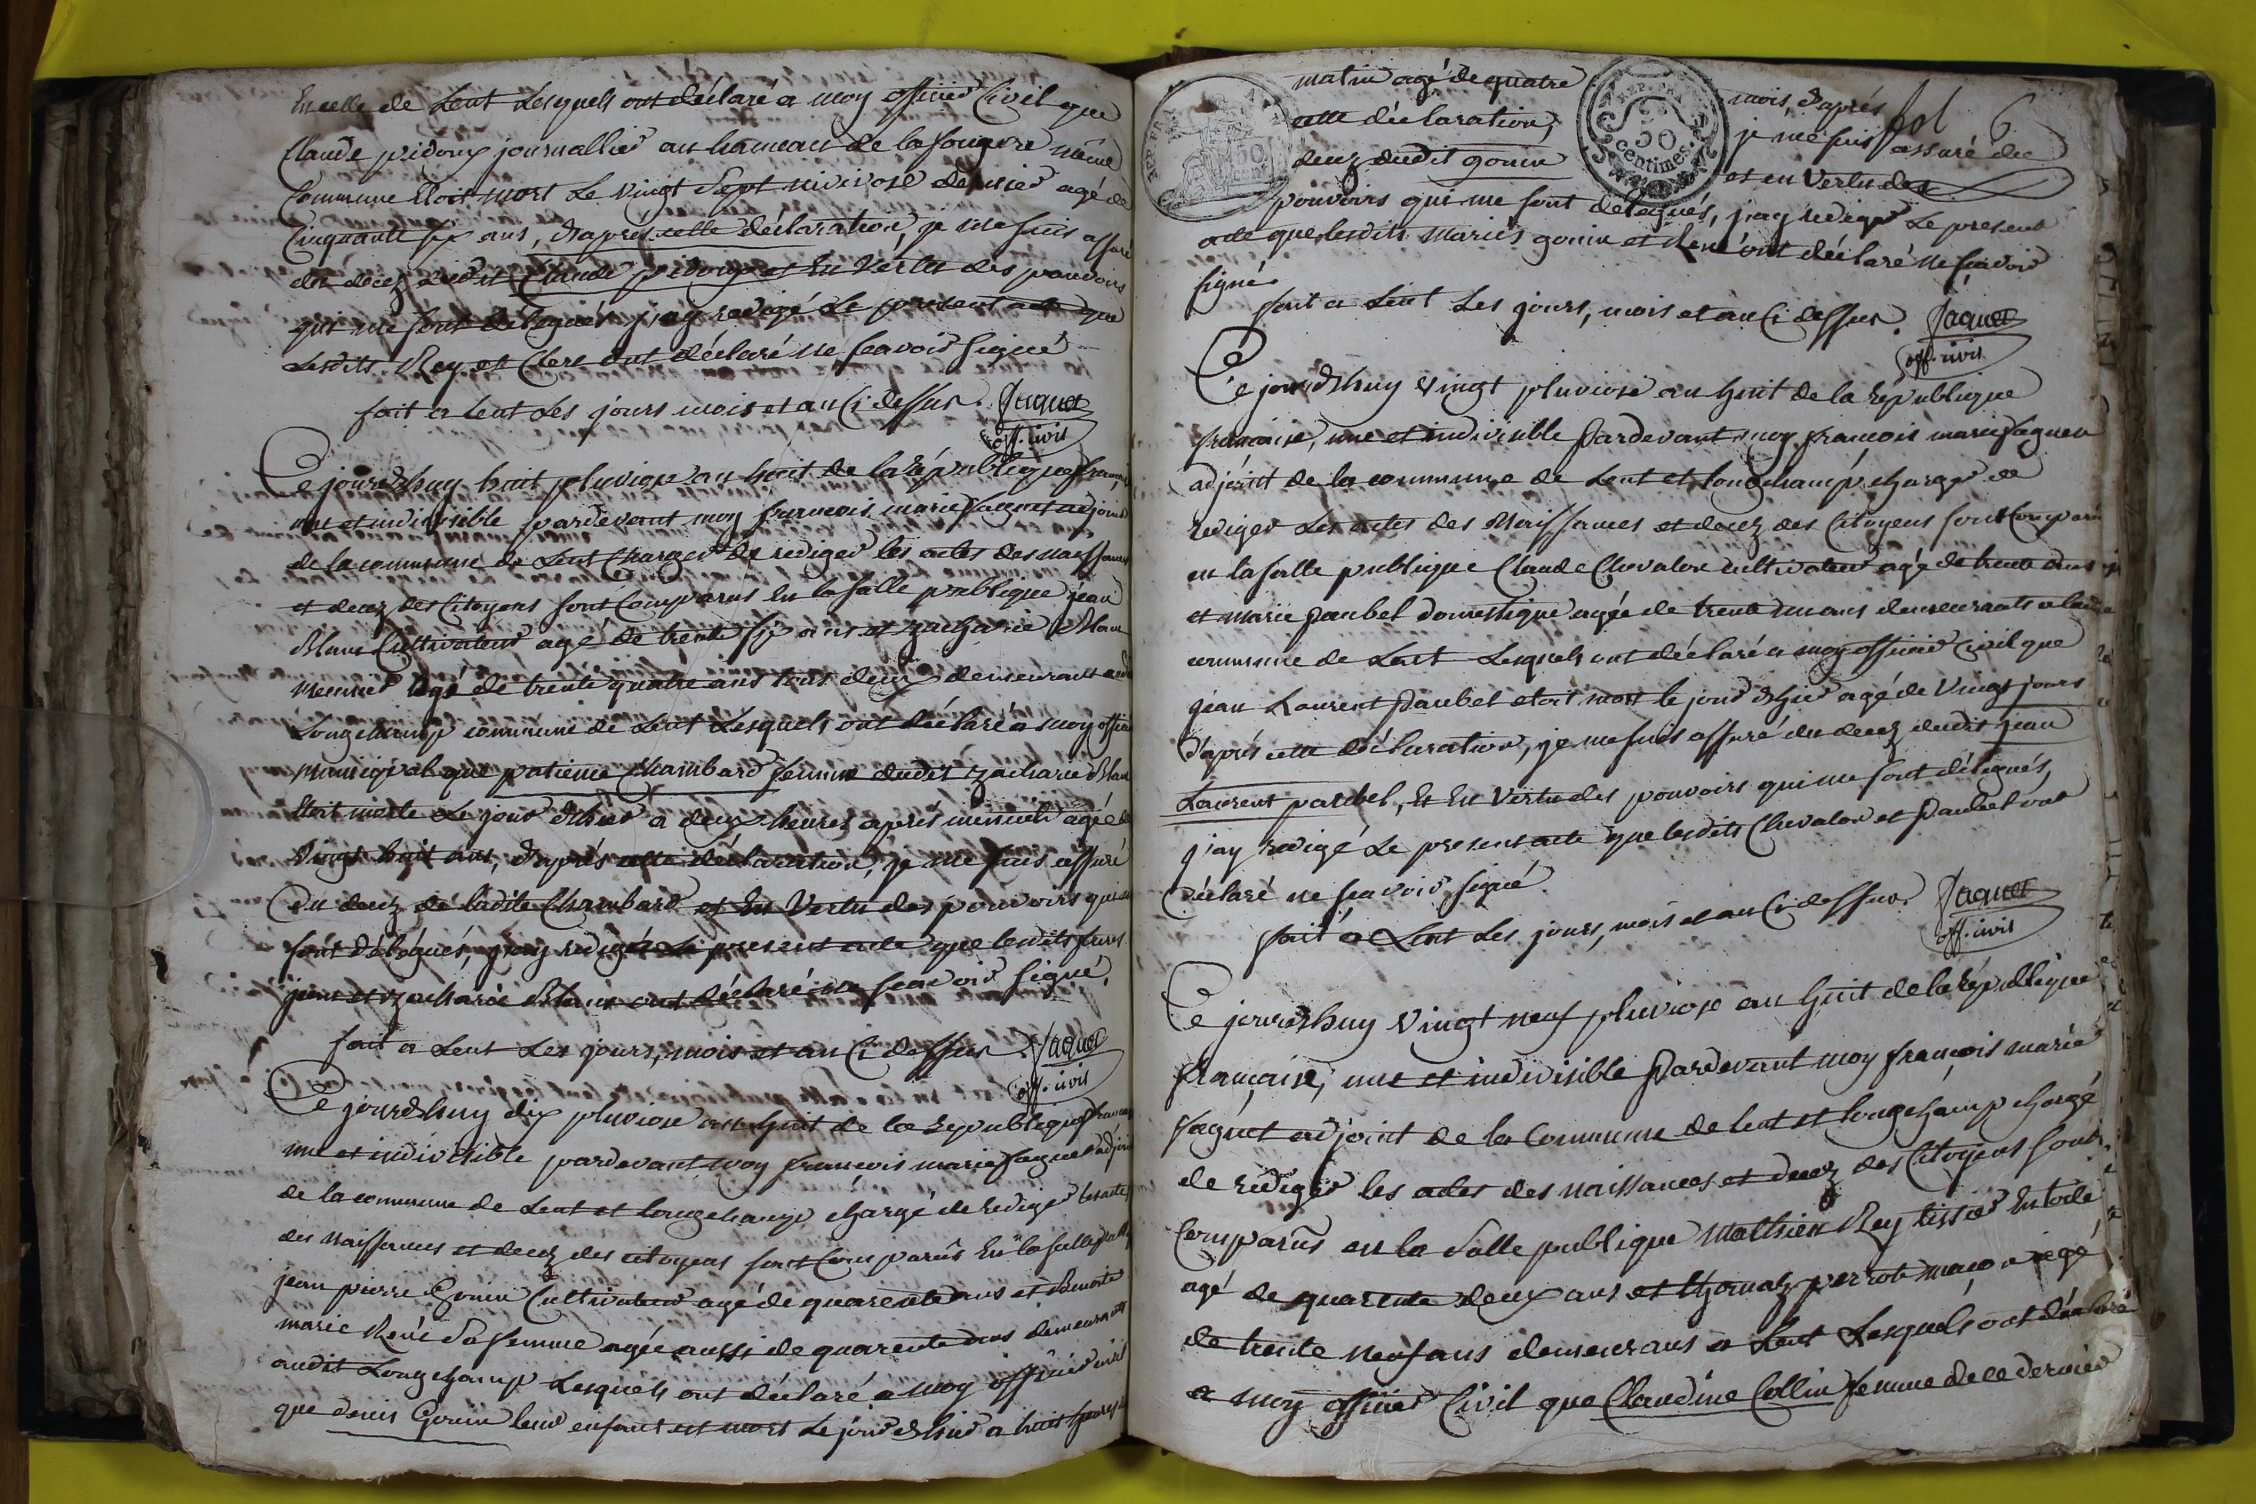 En celle de Lent Lesquels ont déclaré a moy officier Civil que
Claude pidoux journallier au hameau de la fougere même
Commune Etoit mort Le vingt Sept nivivose dernier agé de
Cinquante six ans, d'apres cette déclaration, je me suis assuré
du decez dudit Claude pidoux et En vertu des pouvoirs
qui me sont délégués j'ay redigé Le present acte que
Lesdits Rey et Clerc ont déclaré ne scavoir signé
fait a Lent Les jours mois et an Ci dessus. Jaquet
off. civil
Ce jourd'huy huit pluviose an huit de la République française
une et indivisible pardevant moy francois marie Jaquet adjoint
de la commune de Lent Chargé de rediger les actes des naissances
et decez des Citoyens sont Comparus En la salle publique jean
Blanc Cultivateur agé de trente six ans et zacharie Blanc
meunier agé de trente quatre ans tous deux demeurant
Longchamp commune de Lent Lesquels ont déclaré a moy officier
municipal que patience Chambard femme dudit zacharie Blanc
Etoit morte Le jour d'hier a deux heures aprés minuit agée de
vingt huit ans, d'aprés cette déclaration, je me suis assuré
du decez de ladite Chambard et En Vertu des pouvoirs qui me
sont délégués, j'ay redigé Le present acte que lesdits freres
jean et zacharie Blanc ont déclaré ne scavoir signé.
fait a Lent Les jours, mois et an Ci dessus. Jaquet
off. civil
Ce jourd'huy dix pluviose an huit de la République française
une et indivisible pardevant moy francois marie Jaquet adjoint
de la commune de Lent et longchamp chargé de rediger les actes
des naissances et decez des citoyens sont Comparus En la salle publique
jean pierre Gonin Cultivateur agé de quarente ans et Benoite
marie René Sa femme agée aussi de quarente ans demeurants
audit Longchamp Lesquels ont déclaré a moy officier civil
que denis Gonin leur enfant est mort Le jour d'hier a huit heures du
matin agé de quatre mois, d'aprés fol 6
cette déclaration, je me suis assuré du
decez dudit gonin et en vertu des
pouvoirs qui me sont délégués, j'ay redigé Le present
acte que lesdits mariés gonin et René ont déclaré ne scavoir
signé.
fait a Lent Les jours, mois et an Ci dessus. Jaquet
off. civil
REP. FRA.
50
centimes
Ce jourd'huy vingt pluviose an huit de la République
française, une et indivisible Pardevant moy françois marie Jaquet
adjoint de la commune de Lent et longchamp, chargé de
rediger Les actes des Naissances et decez des Citoyens sont Comparu
en la salle publique Claude Chevalon cultivateur agé de trente ans
et marie paubel domestique agée de trente un ans demeurants a ladite
commune de Lent Lesquels ont déclaré a moy officier Civil que
jean Laurent Paubel etoit mort le jour d'hier agé de Vingt jours
d'aprés cette déclaration, je me suis assuré du decez dudit jean
Laurent paubel, Et En Vertu des pouvoirs qui me sont délégués,
j'ay redigé Le present acte que lesdits Chevalon et Paubel ont
déclaré ne scavoir signé.
fait a Lent Les jours, mois et an Ci dessus. Jaquet
off. civil
Ce jourd'huy vingt neuf pluviose an huit de la République
française, une et indivisible Pardevant moy françois marie
Jaquet adjoint de la Commune de lent et longchamp chargé
de rediger les actes des naissances et decez des Citoyens sont
Comparus en la Salle publique Mathieu Rey tissier En toile
agé de quarente deux ans et thomas perrot maçon agé
de trente neuf ans demeurans a Lent Lesquels ont déclaré
a moy officier Civil que Claudine Collin femme de ce dernier